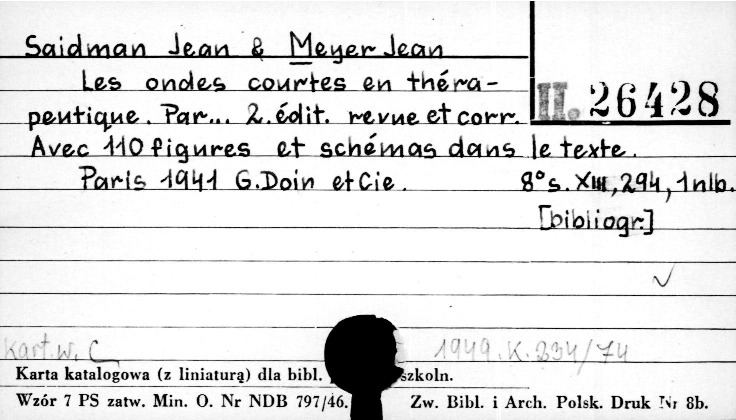 Saidman Jean & Meyer Jean
Les ondes courtes en théra-
peutique. Par... 2. édit. revue et corr.
II. 26428
Avec 110 figures et schémas dans le texte.
Paris 1941 G. Doin et Cie. 8° s. XIII, 294, 1 nlb.
[bibliogr.]
Kart. w. C 1949. K. 334/74
Karta katalogowa (z liniaturą) dla bibl. szkoln.
Wzór 7 PS zatw. Min. O. Nr NDB 797/46. Zw. Bibl. i Arch. Polsk. Druk Nr 8b.